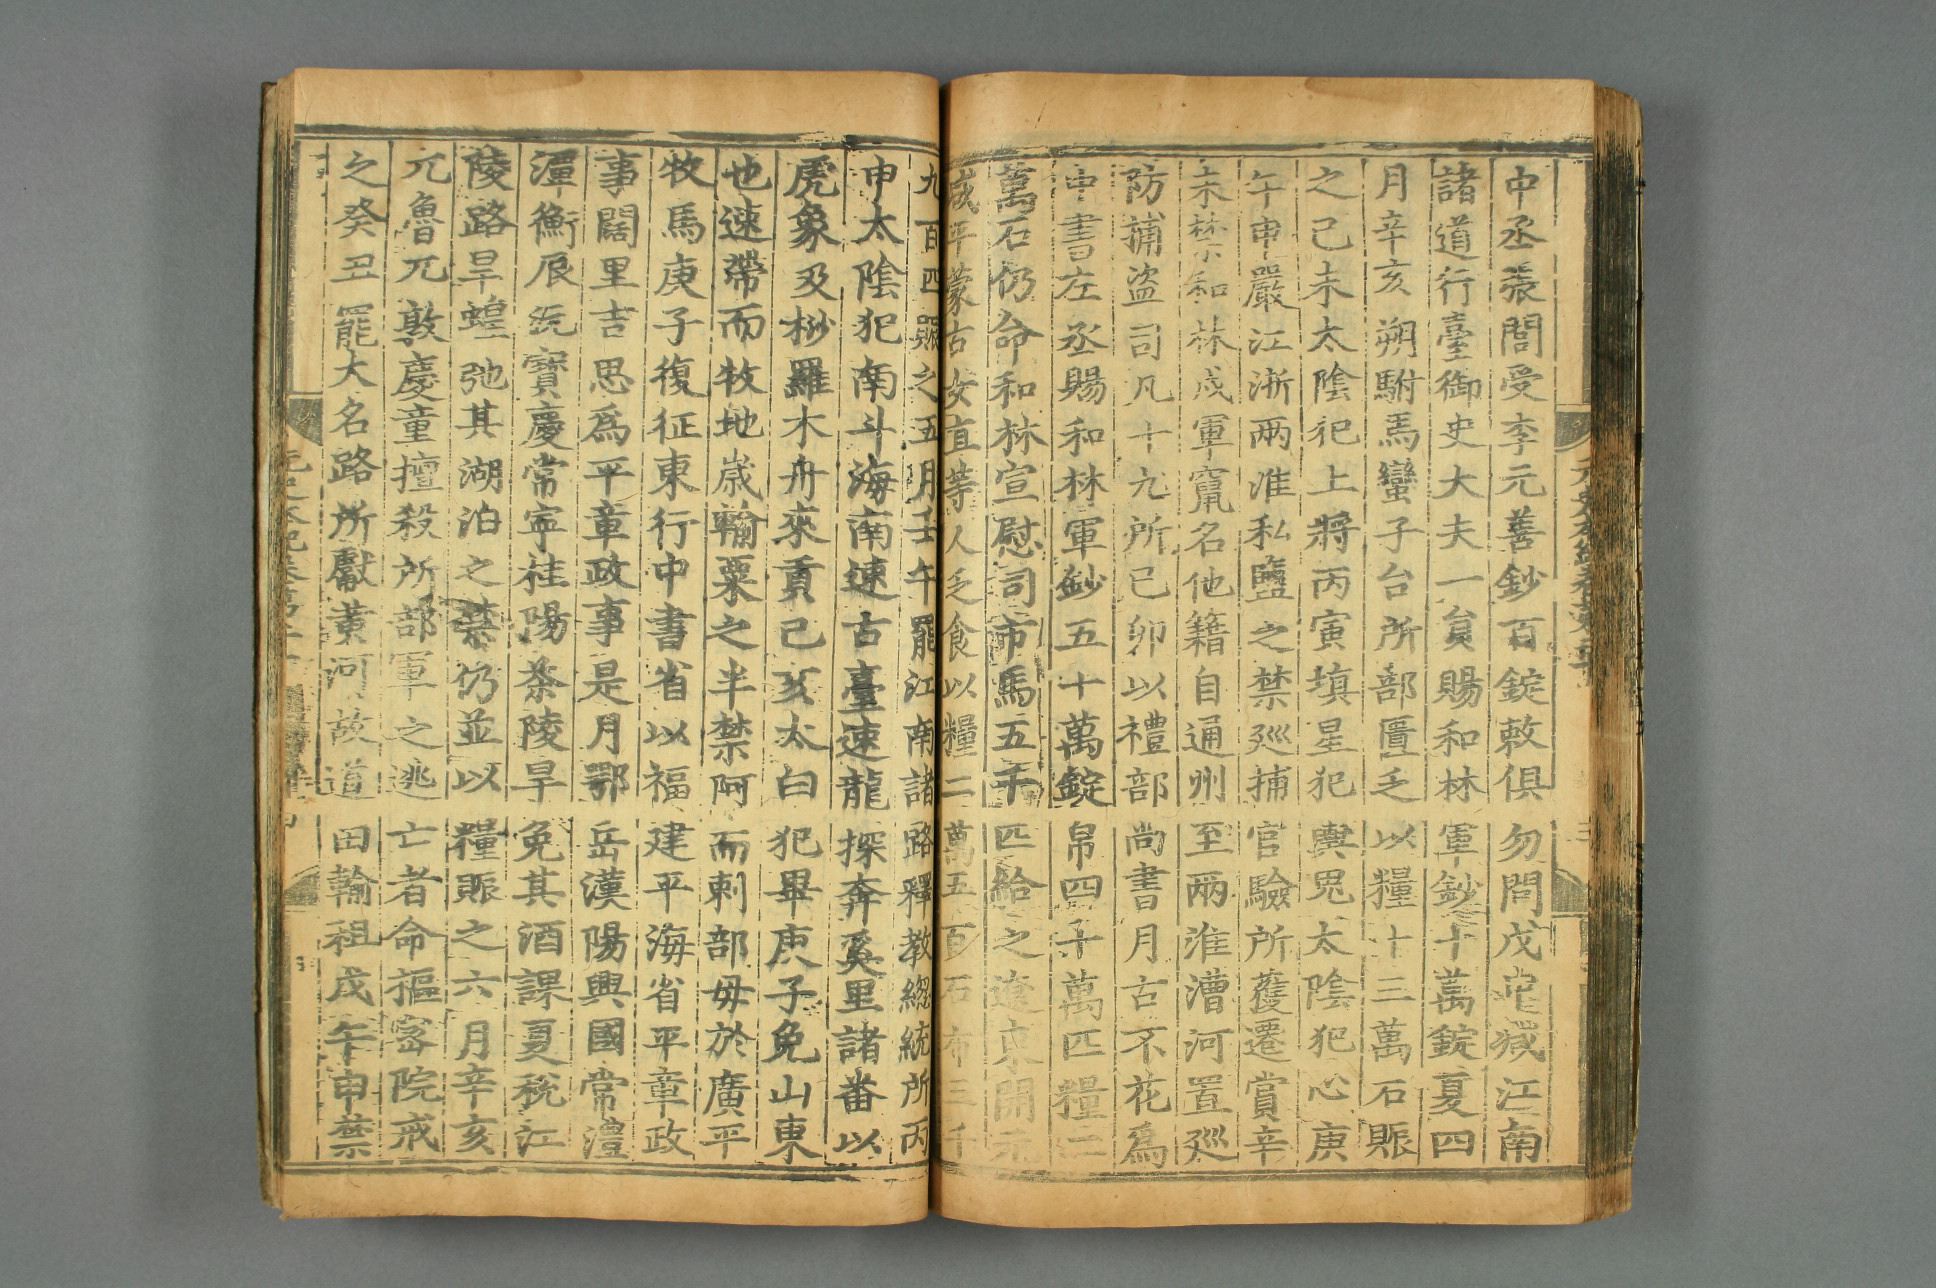 中丞張閭受李元善鈔百錠敕俱勿問戊申減江南
諸道行臺御史大夫一員賜和林軍鈔十萬錠夏四
月辛亥朔駙馬蠻子台所部匱乏以糧十三萬石賑
之己未太陰犯上將丙寅填星犯輿鬼太陰犯心庚
午申嚴江浙兩淮私鹽之禁巡捕官驗所獲遷賞辛
未禁和林戍軍竄名他籍自通州至兩淮漕河置巡
防捕盜司凡十九所己卯以禮部尚書月古不花爲
中書左丞賜和林軍鈔五十萬錠帛四十萬匹糧二
萬石仍命和林宣慰司市馬五千匹給之遼東開元
咸平蒙古女直等人乏食以糧二萬五百石布三千
九百匹賑之五月壬午罷江南諸路釋教總統所丙
申太陰犯南斗海南速古臺速龍探奔奚里諸番以
虎象及桫羅木舟來貢己亥太白犯畢庚子免山東
也速帶而牧地歲輸粟之半禁阿而剌部毋於廣平
牧馬庚子復征東行中書省以福建平海省平章政
事闊里吉思爲平章政事是月鄂岳漢陽興國常澧
潭衡辰沅寶慶常寧桂陽茶陵旱免其酒課夏稅江
陵路旱蝗弛其湖泊之禁仍並以糧賑之六月辛亥
兀魯兀敦慶童擅殺所部軍之逃亡者命樞密院戒
之癸丑罷大名路所獻黃河故道田輸租戊午申禁